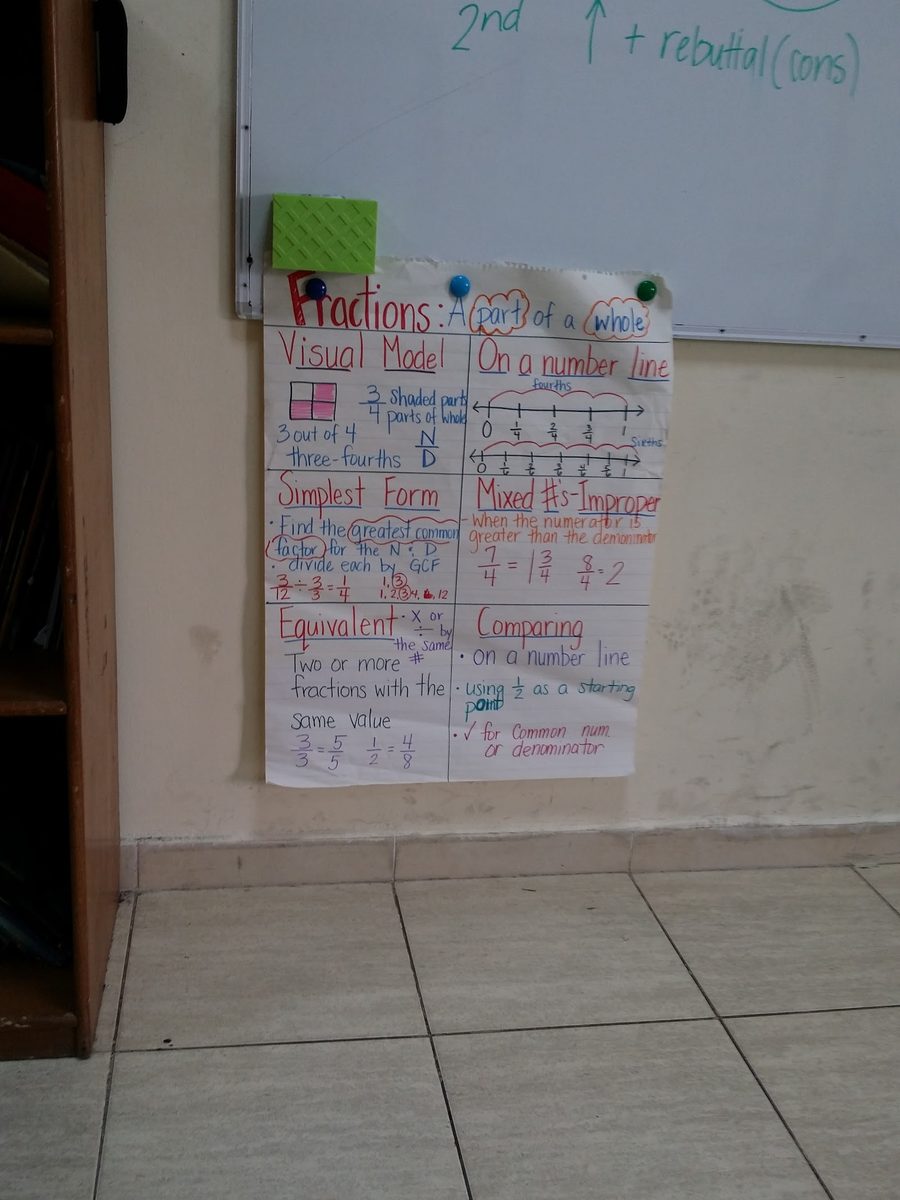 2nd ↑ + rebuttal (cons)
Fractions: A part of a whole
Visual Model
3/4 Shaded parts
parts of whole
3 out of 4
three-fourths N/D
On a number line
fourths
0 1/4 2/4 3/4 1
Sixths
0 1/6 2/6 3/6 4/6 5/6 1
Simplest Form
· Find the greatest common
factor for the N & D
· divide each by GCF
3/12 ÷ 3/3 = 1/4 1, 3
1, 2, 3, 4, 6, 12
Mixed #'s - Improper
when the numerator is
greater than the demoninator
7/4 = 1 3/4 8/4 = 2
Equivalent · x or
÷ by
the same
#
Two or more
fractions with the
same value
3/3 = 5/5 1/2 = 4/8
Comparing
· on a number line
· using 1/2 as a starting
point
· ✓ for Common num
or denominator